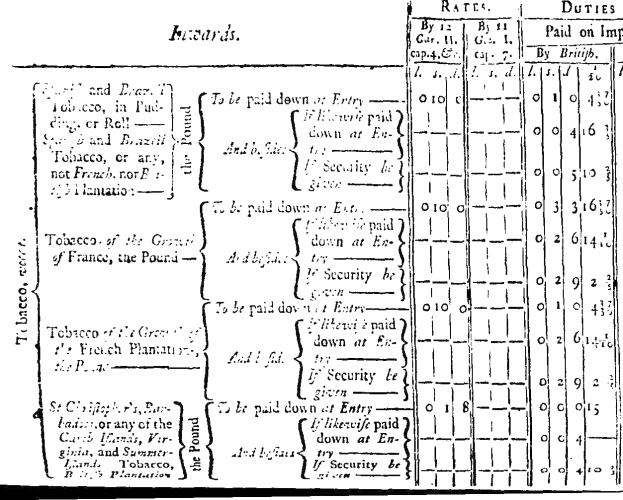 Inwards.
RATES.
DUTIES
By 12
Car. II.
cap. 4, &c.
By 11
Geo. I.
cap. 7.
Paid on Imp
By British.
l. s. d. l. s. d. l. s. d
Tobacco,
and Brazil
Tobacco, in Pud-
ding, or Roll
Spanish and Brazeil
Tobacco, or any,
not French, nor Bri-
tish Plantation
the Pound
To be paid down at Entry — 0 10 0 — — — 0 1 0 4
And besides
If likewise paid
down at En-
try — — — — — — — 0 0 4 16
If Security be
given — — — — — — — 0 0 5 10 2/3
Tobacco, of the Growth
of France, the Pound —
To be paid down at Entry — 0 10 0 — — — 0 3 3 16
And besides
If likewise paid
down at En-
try — — — — — — — 0 2 6 14
If Security be
given — — — — — — — 0 2 9 2
Tobacco of the Growth of
the French Plantations,
the Pound
To be paid down at Entry — 0 10 0 — — — 0 1 0 4
And besid.
If likewise paid
down at En-
try — — — — — — — 0 2 6 14
If Security be
given — — — — — — — 0 2 9 2
St Christopher's, Bar-
badoes, or any of the
Carib Islands, Vir-
ginia, and Summer-
Islands Tobacco,
British Plantation
the Pound
To be paid down at Entry — 0 1 8 — — — 0 0 0 15
And besides
If likewise paid
down at En-
try — — — — — — — 0 0 4 —
If Security be
given — — — — — — — 0 0 4 10